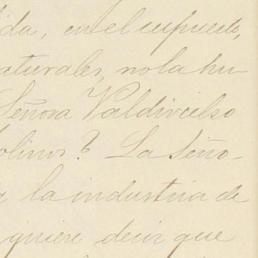 ida, en el supuesto,
aturales, no la hu
Señora Valdivielso
olinos? La Seño-
a la industria de
quiere decir que